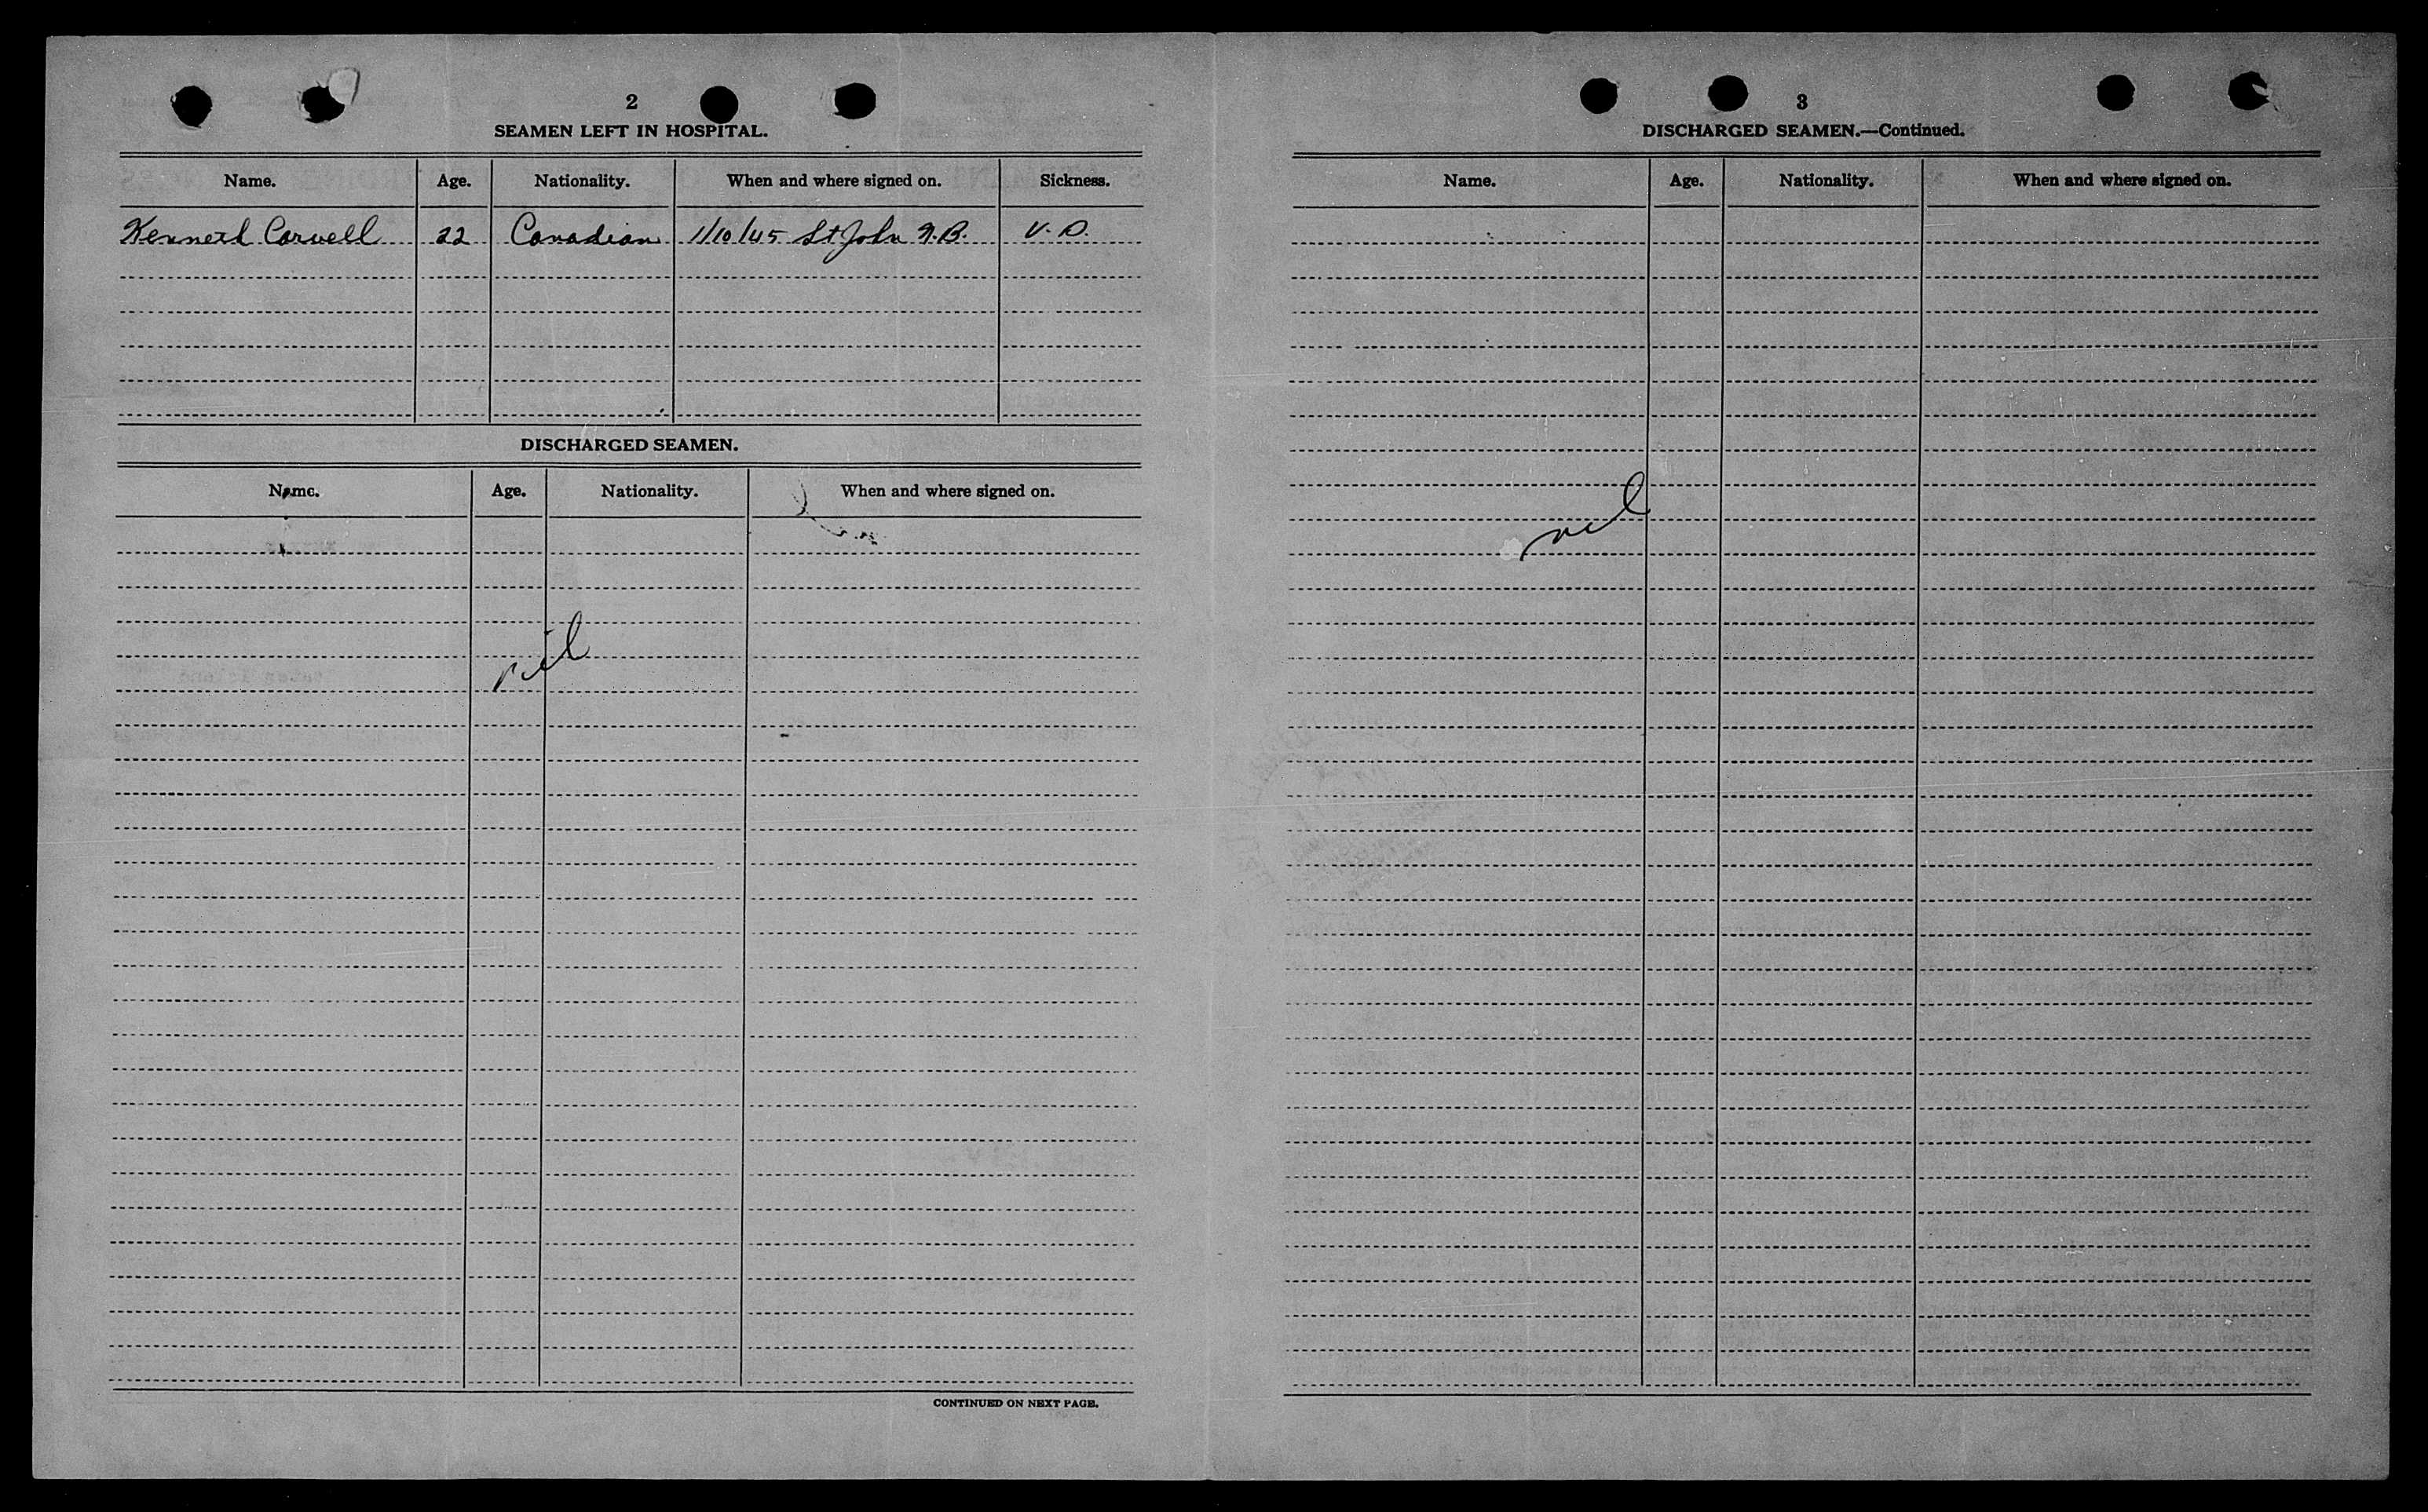 2
SEAMEN LEFT IN HOSPITAL.
Name. Age. Nationality. When and where signed on. Sickness.
Kenneth Corvell 22 Canadian 1/10/45 St John N.B. V.D.
DISCHARGED SEAMEN.
Name. Age. Nationality. When and where signed on.
nil
CONTINUED ON NEXT PAGE.
3
DISCHARGED SEAMEN.—Continued.
Name. Age. Nationality. When and where signed on.
nil